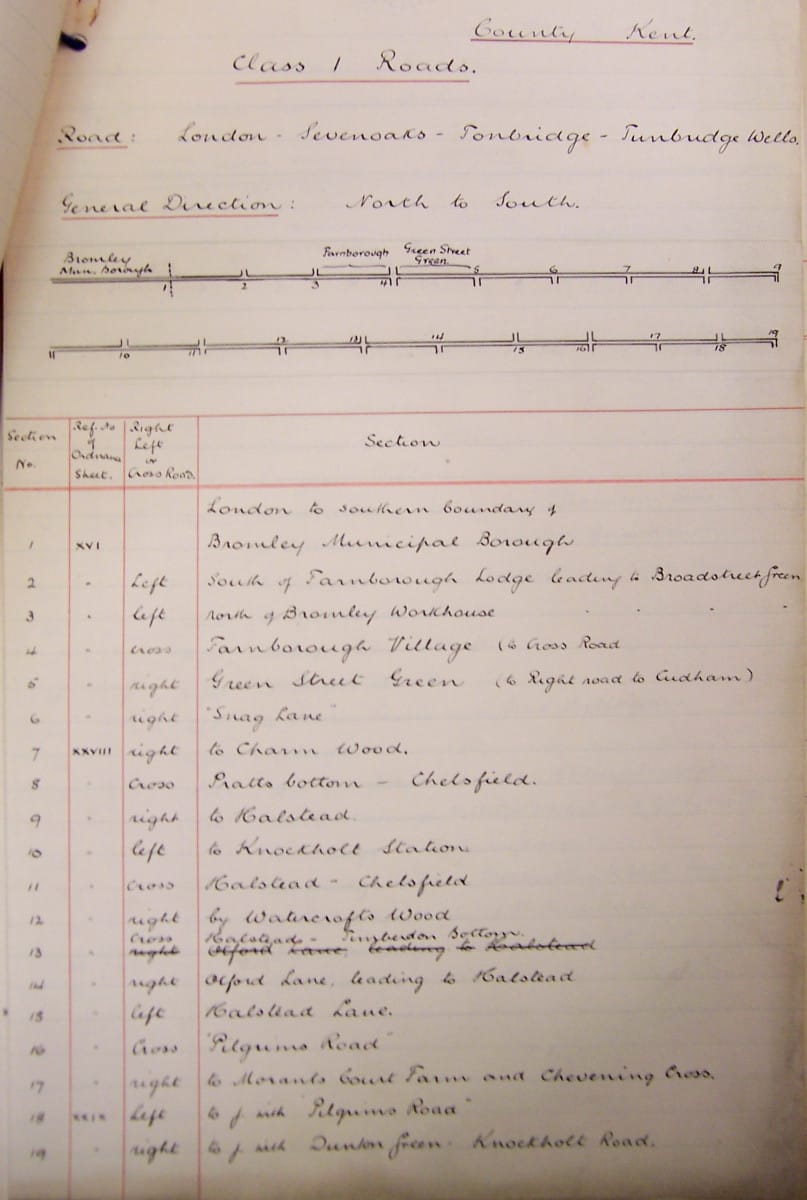 County Kent.
Class 1 Roads.
Road: London - Sevenoaks - Tonbridge - Tunbridge Wells.
General Direction: North to South.
Bromley Farnborough Green Street
Mun. Borough Green
1 2 3 4 5 6 7 8 9
10 11 12 13 14 15 16 17 18 19
Section No. Ref. No of Ordnance Sheet. Right Left or Cross Road. Section
London to southern boundary of
1 XVI Bromley Municipal Borough
2 " Left South of Farnborough Lodge leading to Broadstreet Green
3 " left north of Bromley Workhouse " " "
4 " cross Farnborough Village (to Cross Road
5 " right Green Street Green (to Right road to Cudham)
6 " right "Snag Lane"
7 XXVIII right to Charm Wood.
8 " Cross Pratts bottom - Chelsfield.
9 " right to Halstead.
10 " left to Knockholt Station.
11 " Cross Halstead - Chelsfield
12 " right by Watercrofts Wood
Cross Halstead - Timberden Bottom.
13 " right Otford Lane, leading to Halstead
14 " right Otford Lane, leading to Halstead
15 " left Halstead Lane.
16 " Cross "Pilgrims Road"
17 " right to Morants Court Farm and Chevening Cross.
18 XXIX Left to j. with "Pilgrims Road"
19 " right to j. with Dunton Green - Knockholt Road.